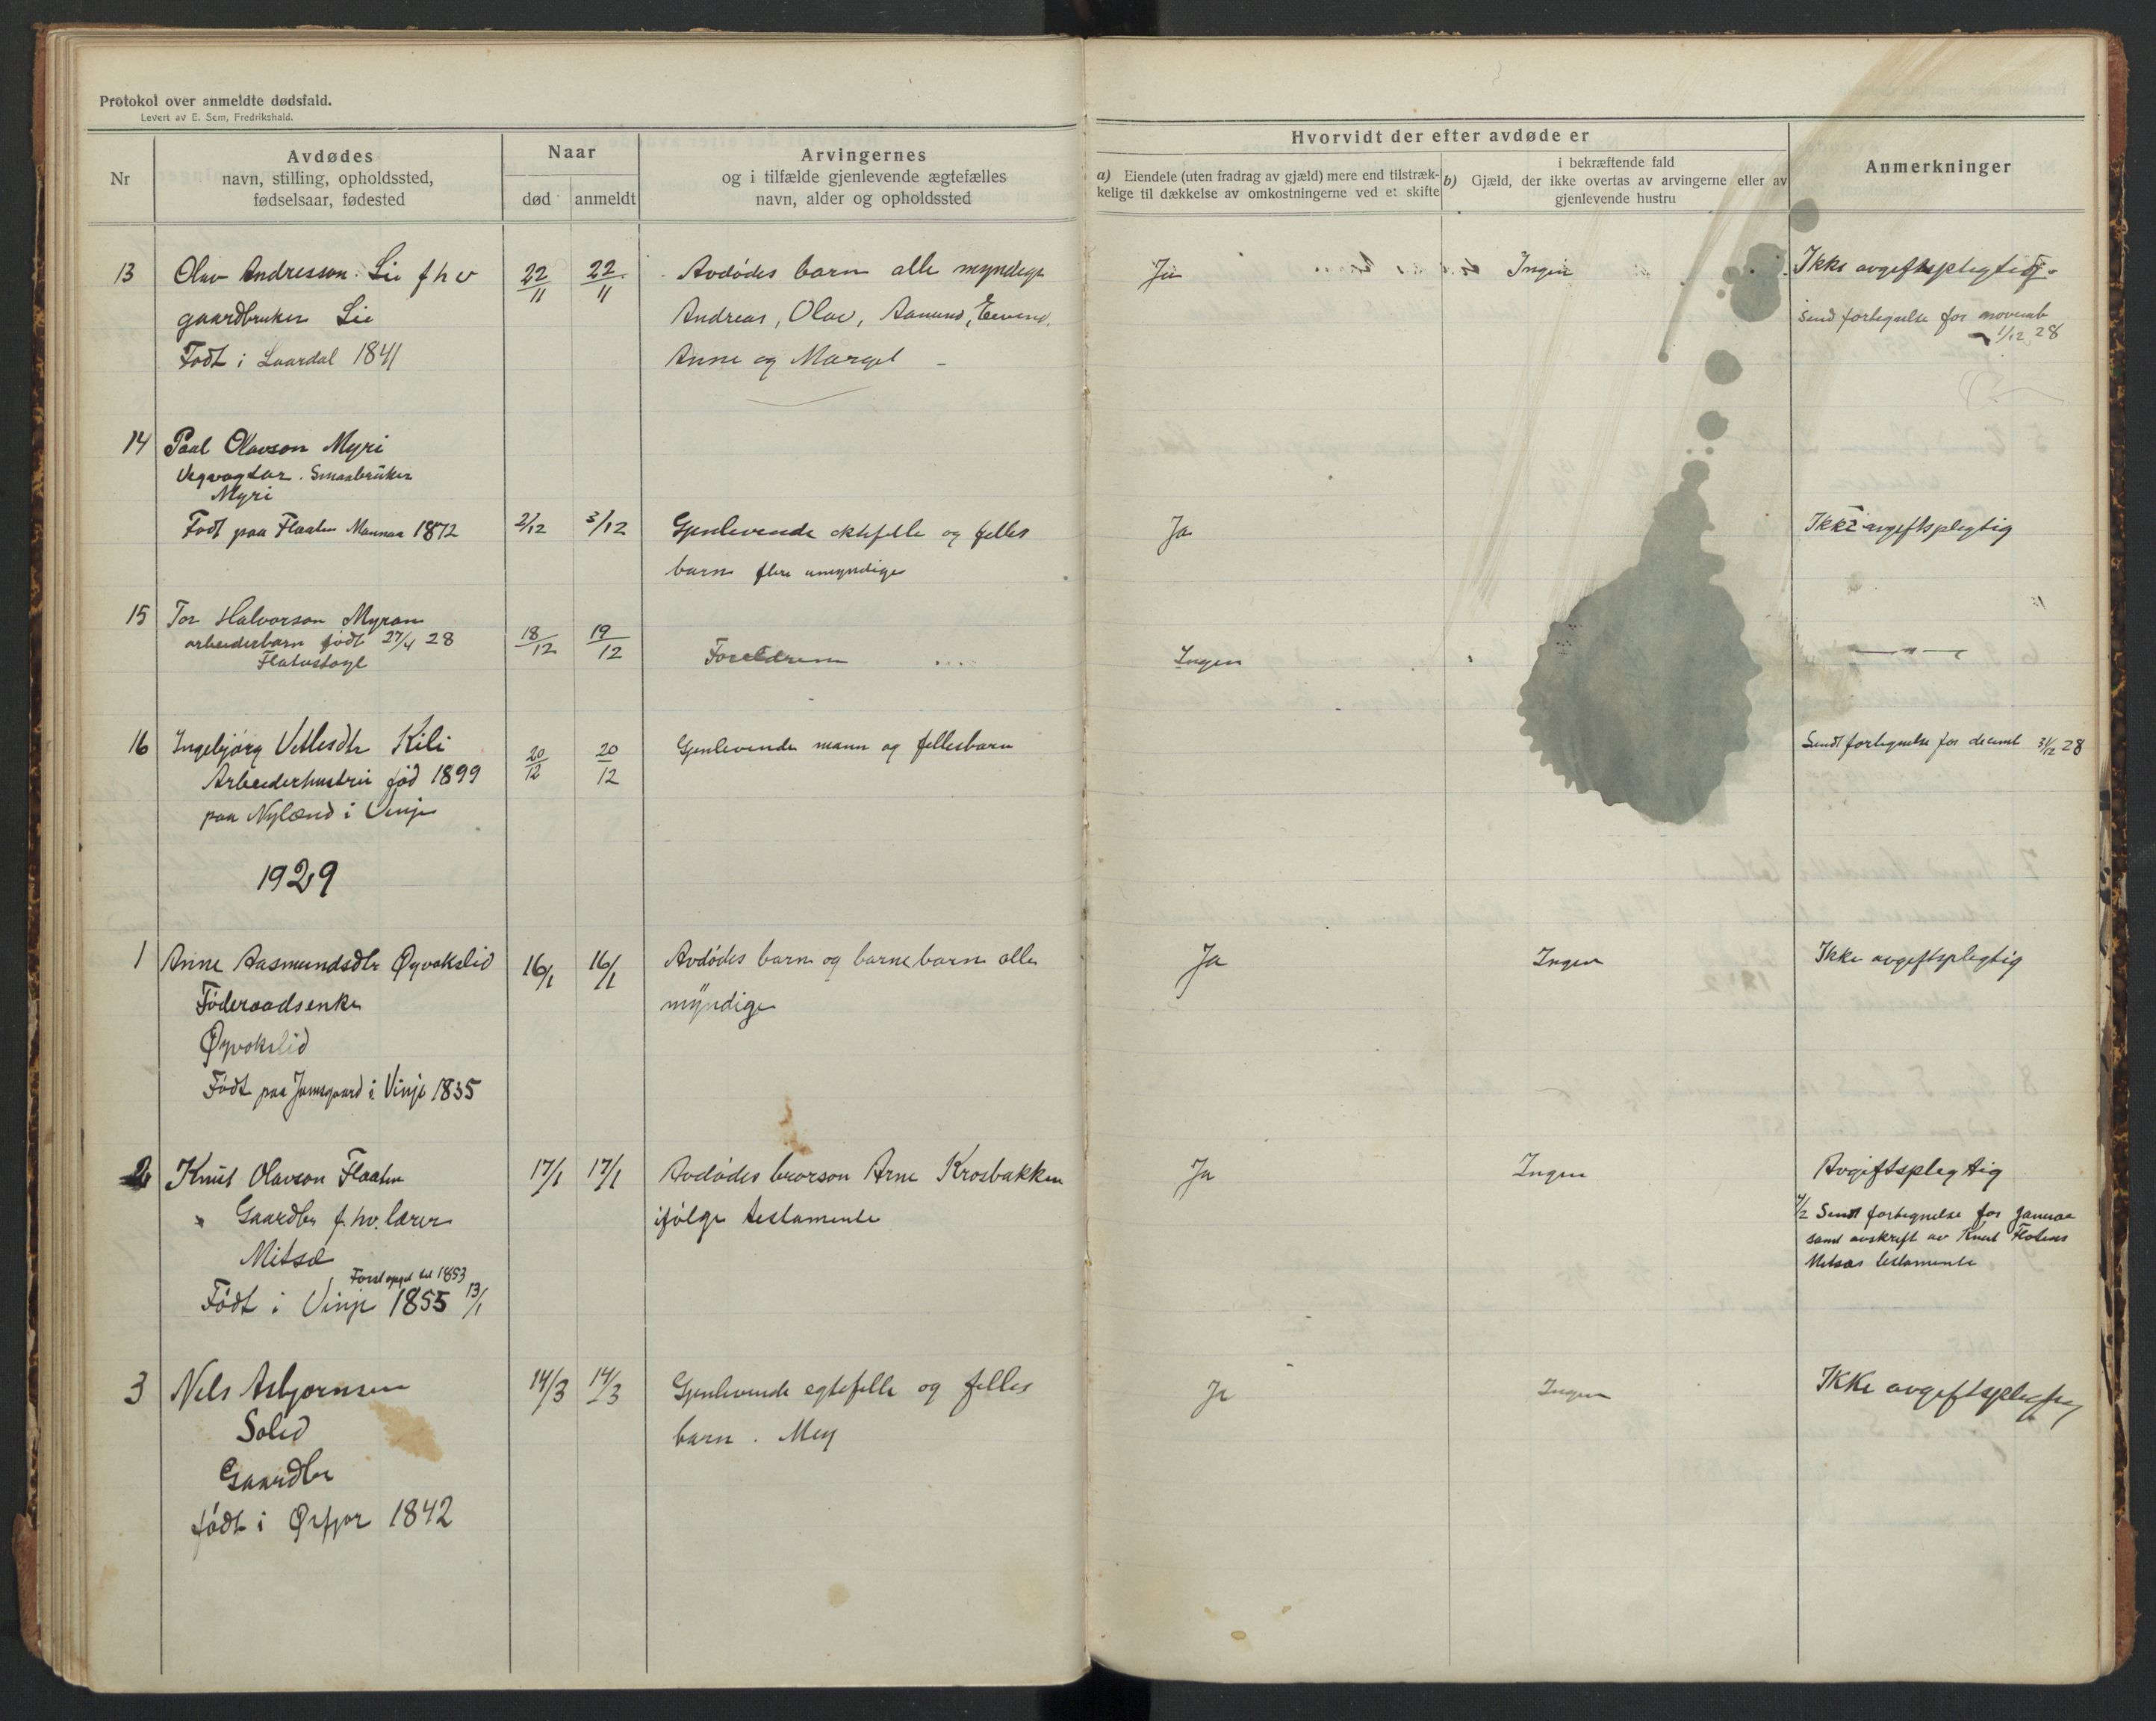 Protokol over anmeldte dødsfald.
Levert av E. Sem, Fredrikshald.
Nr
Avdødes
navn, stilling, opholdssted,
fødselsaar, fødested
Naar
død
anmeldt
Arvingernes
og i tilfælde gjenlevende ægtefælles
navn, alder og opholdssted
Hvorvidt der efter avdøde er
a) Eiendele (uten fradrag av gjæld) mere end tilstræk-
kelige til dækkelse av omkostningerne ved et skifte
i bekræftende fald
b) Gjæld, der ikke overtas av arvingerne eller av
gjenlevende hustru
Anmerkninger
13 Olav Andresson Lie f h v 22/11 22/11 Avdødes barn alle myndige Ja Ingen Ikke avgiftspligtig
gaardbruker Lie Andreas, Olav, Aamund, Eivind, Send fortegnelse for novemb
1/12 28
Født i Laardal 1841 Anne og Margel
14 Paal Olavson Myri
Vegvogtar. Smaabruker
Myri
Født paa Flaaten Mannaa 1872 2/12 3/12 Gjenlevende ektefelle og felles Ja Ikke avgiftsplegtig
barn flere umyndige
15 Tor Halvorson Myran
arbeiderbarn født 27/4 28 18/12 19/12 Foreldrene Ingen — " —
Flatustoyl
16 Ingebjørg Vetlesdtr Kili 20/12 20/12 Gjenlevende mann og fellesbarn Sendt fortegnelse for decemb 31/12 28
Arbeiderhustru fød 1899
paa Nylænd i Vinje
1929
1 Anne Aasmundsdtr Øyvokslid 16/1 16/1 Avdødes barn og barnebarn alle Ja Ingen Ikke avgiftsplegtig
Føderaadsenke myndige
Øyvokslid
Født paa Jamsgaard i Vinje 1835
2 Knut Olavson Flaaten 17/1 17/1 Avdødes brorson Arne Krosbakken Ja Ingen Avgiftsplegtig
Gaardbr f. hv. lærer ifølge testamente 4/2 Sendt fortegnelse for januar
samt avskrift av Knut Flotens
Mitsæ Mitsæs testamente
Først opgit til 1853
Født i Vinje 1855 13/1
3 Nels Asbjørnsen 14/3 14/3 Gjenlevende egtefelle og felles Ja Ingen Ikke avgiftsplegtig
Solid barn.
Gaardbr
født i 1842